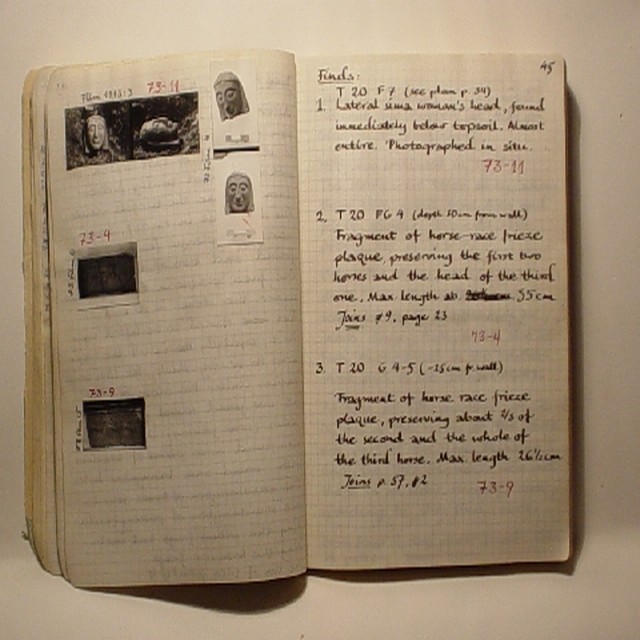 73-11
73-4
73-9
45
Finds:
T 20 F 7 (see plan p. 34)
1. Lateral sima woman's head, found
immediately below topsoil. Almost
entire. Photographed in situ.
73-11
2. T 20 FG 4 (depth 10cm from wall)
Fragment of horse-race frieze
plaque, preserving the first two
horses and the head of the third
one. Max length ab. 55cm
Joins #9, page 23
73-4
3. T 20 G 4-5 (-25cm fr. wall)
Fragment of horse race frieze
plaque, preserving about 2/3 of
the second and the whole of
the third horse. Max length 26½cm
Joins p. 57, #2
73-9